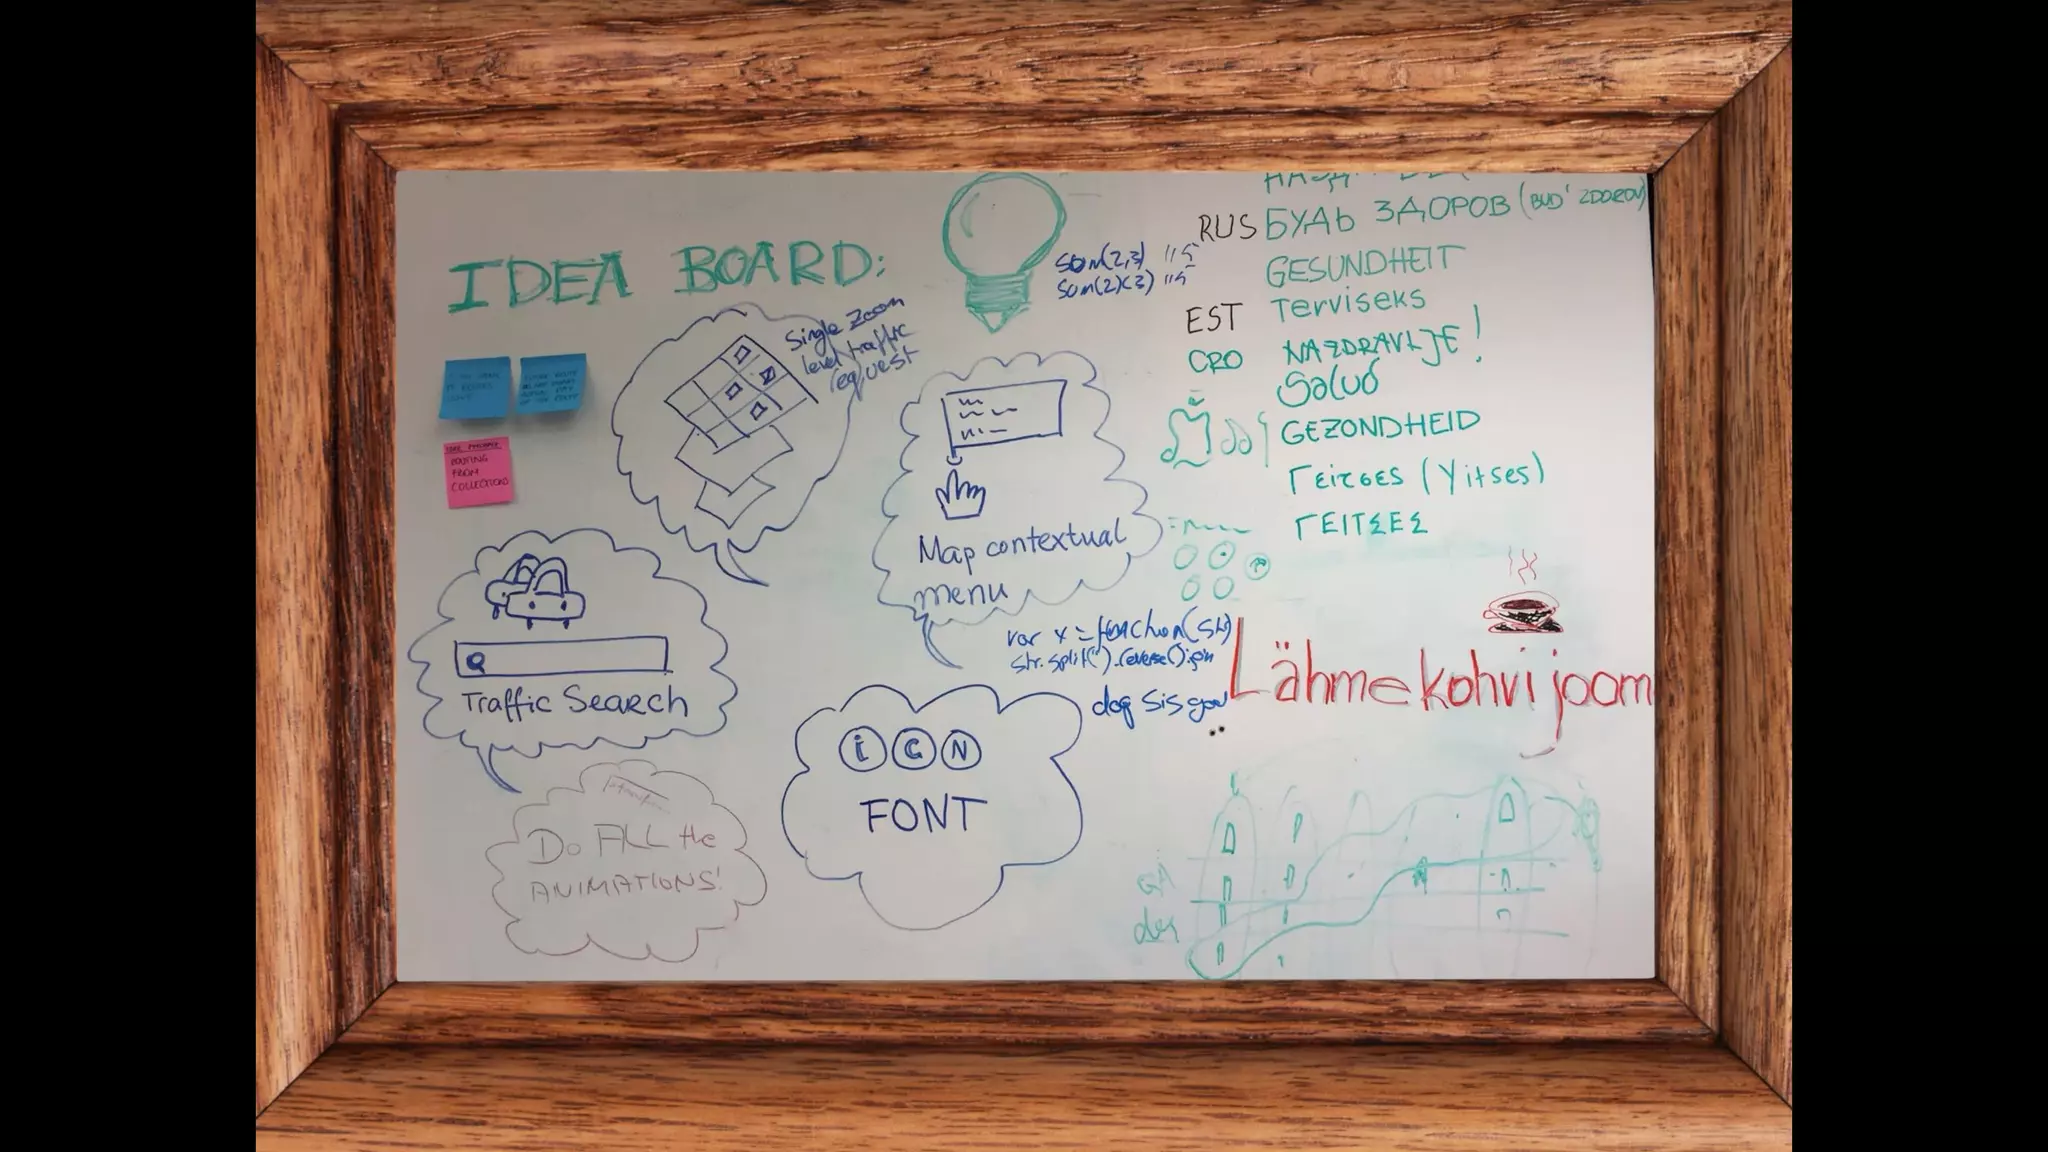 IDEA BOARD:
sum(2,3) //5
sum(2)(3) //5
RUS БУДЬ ЗДОРОВ (BUD' ZDOROV)
GESUNDHEIT
EST Terviseks
CRO NAZDRAVLJE!
Salud
GEZONDHEID
Γείτσες (Yitses)
ΓΕΙΤΣΕΣ
Single Zoom
level traffic
request
IDEA
ROUTING
FROM
COLLECTIONS
Map contextual
menu
Traffic Search
var x = function(str)
str.split('').reverse().join
Lähme kohvi jooma
iCN
FONT
Do ALL the
ANIMATIONS!